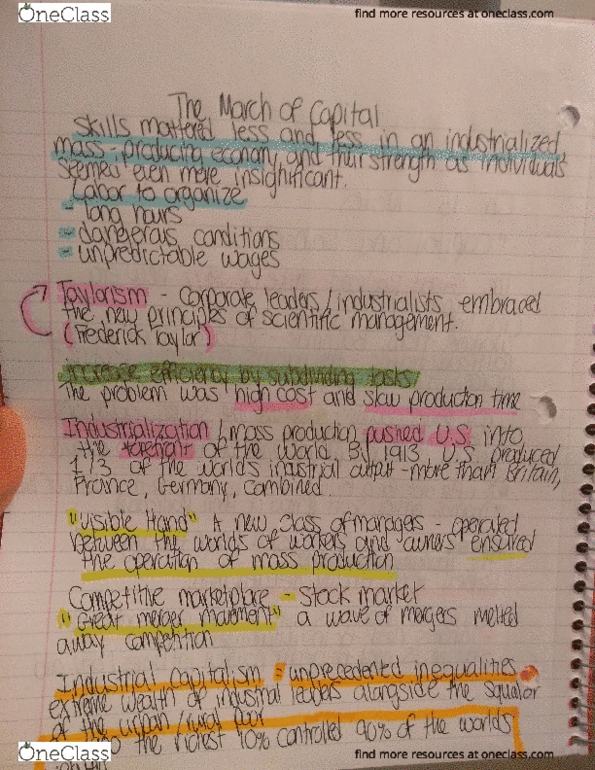 OneClass
find more resources at oneclass.com
The March of Capital
Skills mattered less and less in an industrialized
mass-producing economy, and their strength as individuals
seemed even more insignificant.
Labor to organize
- long hours
- dangerous conditions
- unpredictable wages
Taylorism - Corporate leaders/industrialists embraced
the new principles of scientific management.
(Frederick Taylor)
increase efficiency by subdividing tasks
The problem was high cost and slow production time
Industrialization / mass production pushed U.S. into
the forefront of the world. By 1913 U.S. produced
1/3 of the world's industrial output - more than Britain,
France, Germany, combined.
"Visible Hand" A new class of managers - operated
between the worlds of workers and owners ensured
the operation of mass production
Competitive marketplace - stock market
"Great merger movement" a wave of mergers melted
away competition
Industrial capitalism = unprecedented inequalities
extreme wealth of industrial leaders alongside the squalor
of the urban/rural poor
the richest 10% controlled 90% of the worlds
OneClass
find more resources at oneclass.com